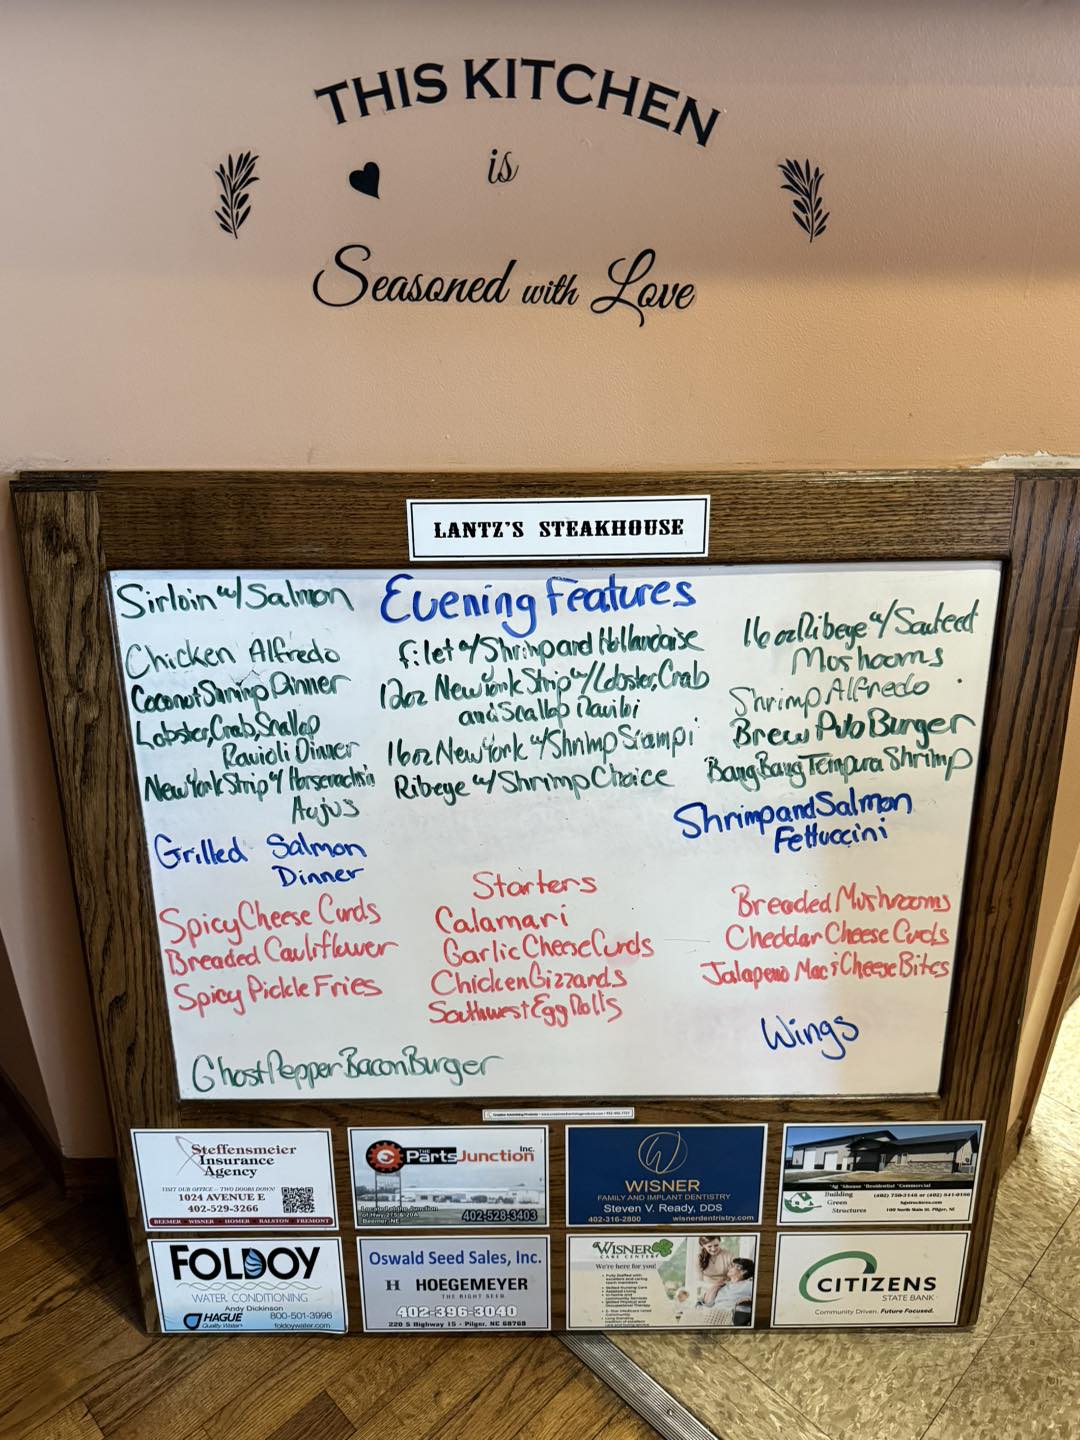 THIS KITCHEN
is
Seasoned with Love
LANTZ'S STEAKHOUSE
Evening Features
Sirloin w/ Salmon
Chicken Alfredo
Coconut Shrimp Dinner
Lobster, Crab, Scallop
Ravioli Dinner
New York Strip w/ Horseradish
Aujus
Grilled Salmon
Dinner
Filet w/ Shrimp and Hollandaise
12oz New York Strip w/ Lobster, Crab
and Scallop Ravioli
16oz New York w/ Shrimp Scampi
Ribeye w/ Shrimp Choice
16 oz Ribeye w/ Sauteed
Mushrooms
Shrimp Alfredo
Brew Pub Burger
Bang Bang Tempura Shrimp
Shrimp and Salmon
Fettuccini
Starters
Spicy Cheese Curds
Breaded Cauliflower
Spicy Pickle Fries
Calamari
Garlic Cheese Curds
Chicken Gizzards
Southwest Egg Rolls
Breaded Mushrooms
Cheddar Cheese Curds
Jalapeno Mac & Cheese Bites
Wings
Ghost Pepper Bacon Burger
Steffensmeier
Insurance
Agency
VISIT OUR OFFICE - TWO DOORS DOWN!
1024 AVENUE E
402-529-3266
BEEMER WISNER HOMER RALSTON FREMONT
THE Parts Junction Inc.
Located at the Junction
of Hwy 275 & 20A
Beemer, NE
402-528-3403
W
WISNER
FAMILY AND IMPLANT DENTISTRY
Steven V. Ready, DDS
402-316-2800 wisnerdentistry.com
Building
Green
Structures
FOLDOY
WATER CONDITIONING
Andy Dickinson
HAGUE
Quality Water
800-501-3996
foldoywater.com
Oswald Seed Sales, Inc.
H HOEGEMEYER
THE RIGHT SEED
402-396-3040
220 S Highway 15 - Pilger, NE 68768
WISNER
CARE CENTER
We're here for you!
CITIZENS
STATE BANK
Community Driven. Future Focused.